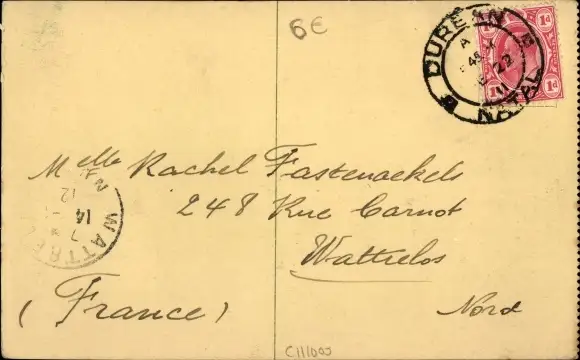 6€
DURBAN
NATAL
22
11
1d 1d
Melle Rachel Fastenaekels
248 Rue Carnot
Wattrelos
(France)
Nord
WATTRE
14
7
12